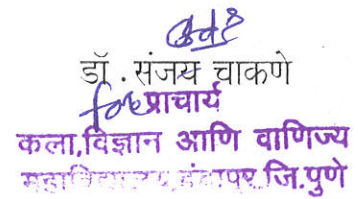 डॉ. संजय चाकणे
for प्राचार्य
कला,विज्ञान आणि वाणिज्य
महाविद्यालय,इंदापूर,जि.पुणे